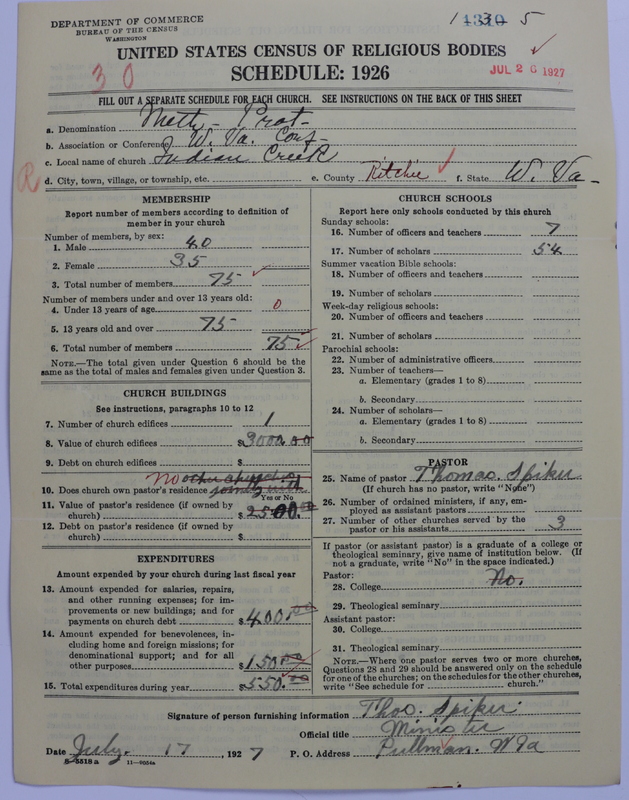 DEPARTMENT OF COMMERCE
BUREAU OF THE CENSUS
WASHINGTON
1 3 5
1310
UNITED STATES CENSUS OF RELIGIOUS BODIES
30
SCHEDULE: 1926
JUL 26 1927
FILL OUT A SEPARATE SCHEDULE FOR EACH CHURCH. SEE INSTRUCTIONS ON THE BACK OF THIS SHEET
a. Denomination Meth- Prot-
b. Association or Conference W. Va. Conf-
c. Local name of church Indian Creek
R d. City, town, village, or township, etc. e. County Ritchie f. State W. Va-
MEMBERSHIP
Report number of members according to definition of
member in your church
Number of members, by sex:
1. Male 40
2. Female 35
3. Total number of members 75
Number of members under and over 13 years old:
4. Under 13 years of age 0
5. 13 years old and over 75
6. Total number of members 75
NOTE.—The total given under Question 6 should be the
same as the total of males and females given under Question 3.
CHURCH BUILDINGS
See instructions, paragraphs 10 to 12
7. Number of church edifices 1
8. Value of church edifices $3000.00
9. Debt on church edifices $
No other churches
10. Does church own pastor's residence jointly with
Yes or No
11. Value of pastor's residence (if owned by
church) $2500.00
12. Debt on pastor's residence (if owned by
church) $
EXPENDITURES
Amount expended by your church during last fiscal year
13. Amount expended for salaries, repairs,
and other running expenses; for im-
provements or new buildings; and for
payments on church debt $400.00
14. Amount expended for benevolences, in-
cluding home and foreign missions; for
denominational support; and for all
other purposes $150.00
15. Total expenditures during year $550.00
CHURCH SCHOOLS
Report here only schools conducted by this church
Sunday schools:
16. Number of officers and teachers 7
17. Number of scholars 54
Summer vacation Bible schools:
18. Number of officers and teachers
19. Number of scholars
Week-day religious schools:
20. Number of officers and teachers
21. Number of scholars
Parochial schools:
22. Number of administrative officers
23. Number of teachers—
a. Elementary (grades 1 to 8)
b. Secondary
24. Number of scholars—
a. Elementary (grades 1 to 8)
b. Secondary
PASTOR
25. Name of pastor Thomas. Spiker
(If church has no pastor, write "None")
26. Number of ordained ministers, if any, em-
ployed as assistant pastors
27. Number of other churches served by the
pastor or his assistants 3
If pastor (or assistant pastor) is a graduate of a college or
theological seminary, give name of institution below. (If
not a graduate, write "No" in the space indicated.)
Pastor:
28. College No.
29. Theological seminary
Assistant pastor:
30. College
31. Theological seminary
NOTE.—Where one pastor serves two or more churches,
Questions 28 and 29 should be answered only on the schedule
for one of the churches; on the schedules for the other churches,
write "See schedule for church."
Signature of person furnishing information Thos. Spiker
Official title Minister
Date July. 17, 1927 P. O. Address Pullman. W Va
8-5518 a 11-9054a